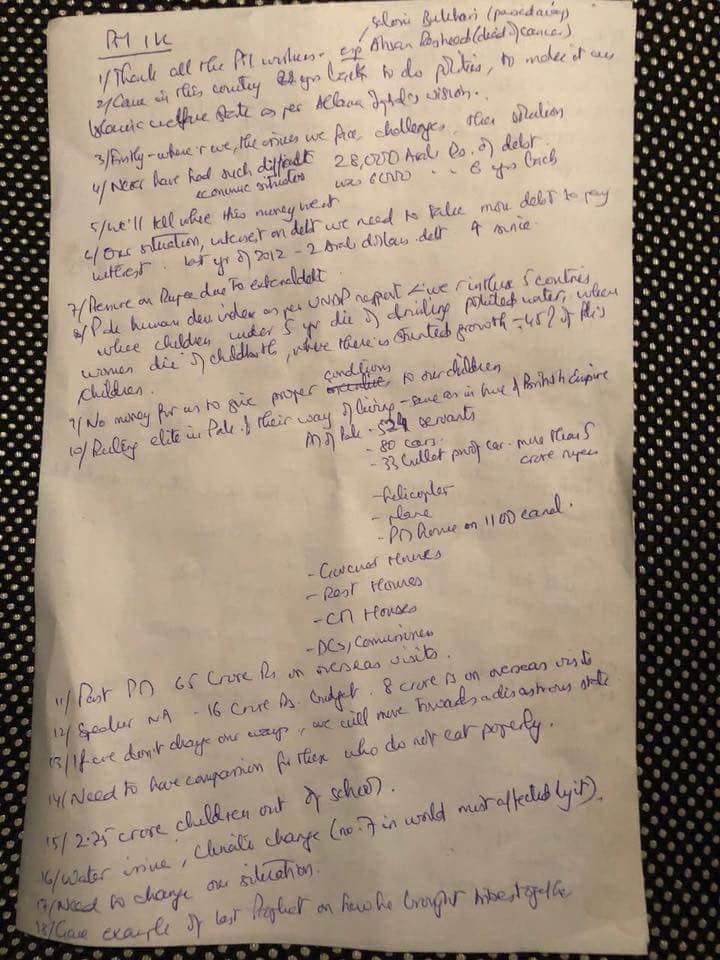 PM IK
Saloni Bukhari (passed away)
1/ Thank all the PTI workers - esp Ahsan Rasheed (died of cancer)
2/ Came in this country 22 yrs back to do politics, to make it an
Islamic welfare state as per Allama Iqbal's vision.
3/ Firstly - where r we, the crises we face, challenges, then situation
4/ Never have had such difficult 28,000 Arab Rs. of debt.
economic situation was 6000 " " 6 yrs back
5/ We'll tell where this money went
6/ Our situation, interest on debt we need to take more debt to pay
interest. last yr of 2012 - 2 Arab dollars debt
7/ Pressure on Rupee due to external debt
8/ Pak human dev index as per UNDP report < we r in those 5 countries
where children under 5 yr die of drinking polluted water, where
women die of childbirth, where there is stunted growth - 45% of this
children.
9/ No money for us to give proper conditions to our children
10/ Ruling elite in Pak & their way of living - same as in time of British Empire
PM of Pak - 524 servants
- 80 cars.
- 33 bullet proof car. more than 5
crore rupees
- Helicopter
- plane
- PM house on 1100 canal.
- Governor Houses
- Rest Houses
- CM Houses
- DCs, Commissioner
11/ Past PM 65 crore Rs on overseas visits.
12/ Speaker NA - 16 Crore Rs. budget. 8 crore Rs on overseas visits
13/ If we don't change our ways, we will move towards a disastrous state
14/ Need to have compassion for those who do not eat properly.
15/ 2.25 crore children out of school.
16/ Water issue, climate change (no. 7 in world most affected by it).
17/ Need to change our situation.
18/ Gave example of last Prophet on how he brought tribes together